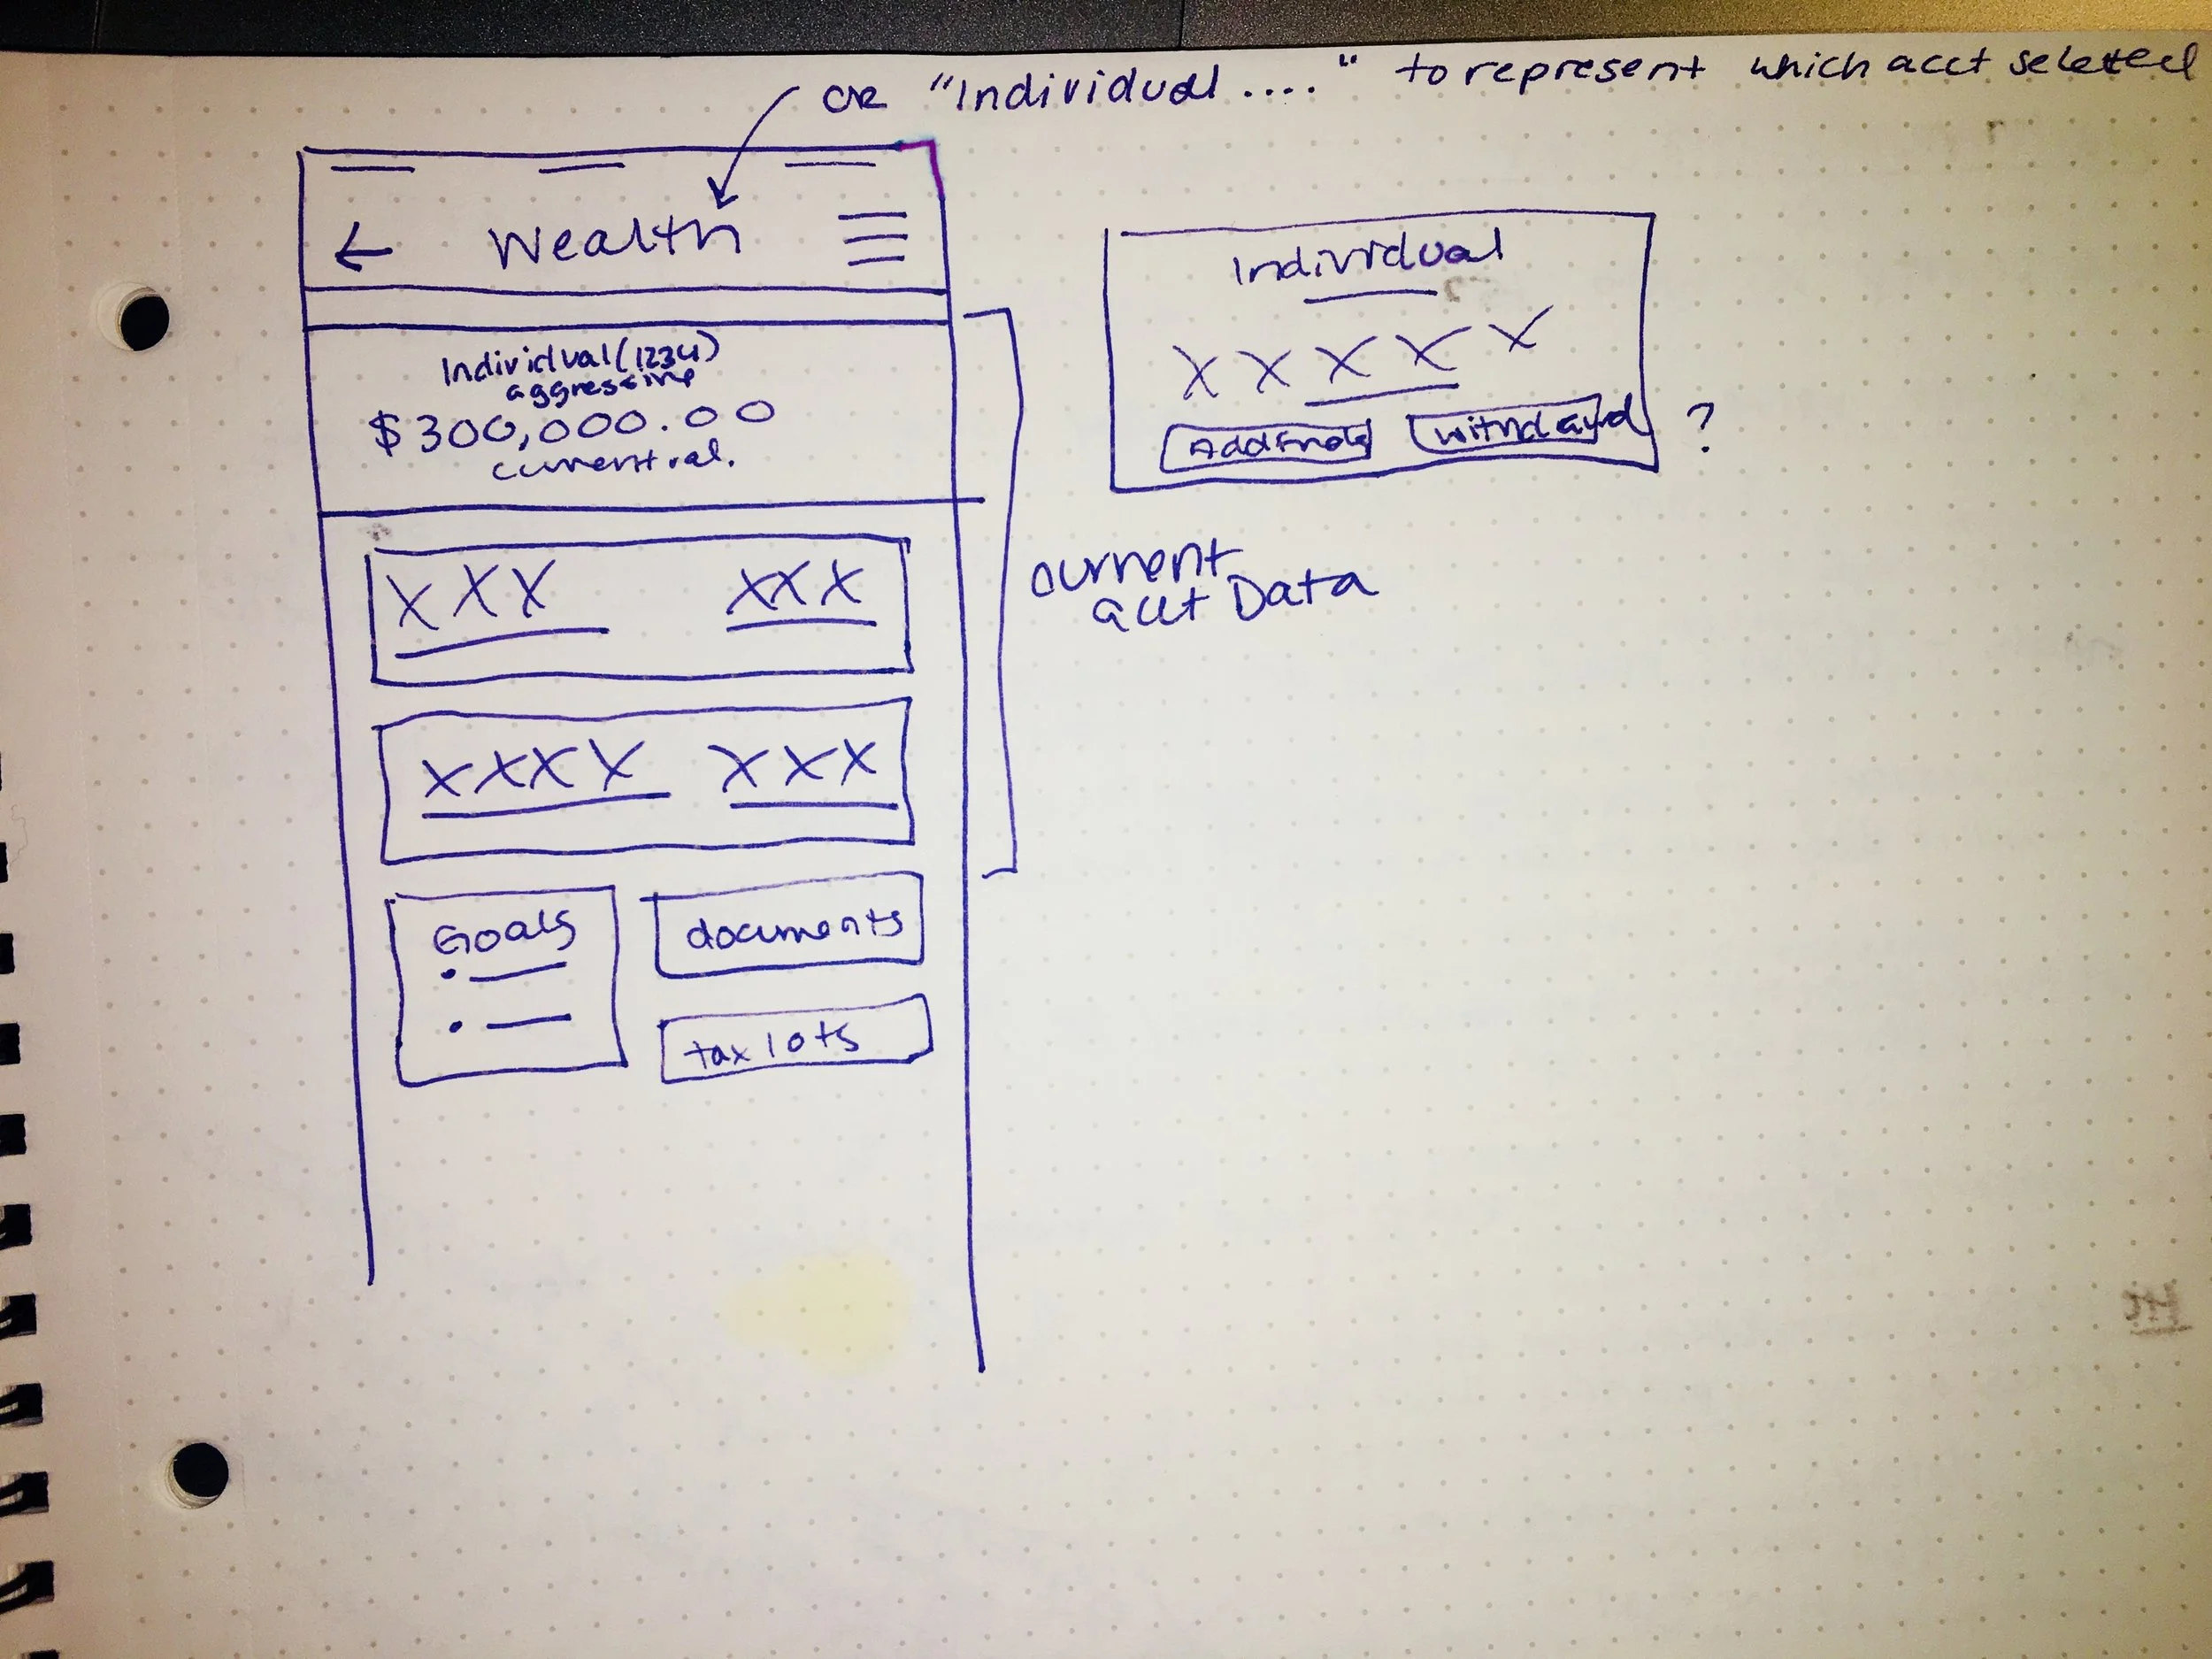 or "Individual ...." to represent which acct selected
Wealth
Individual (1234)
aggressive
$300,000.00
current val.
XXX XXX
XXXX XXX
Goals
documents
tax lots
Individual
XXXXX
Add Funds withdrawl ?
current
acct Data